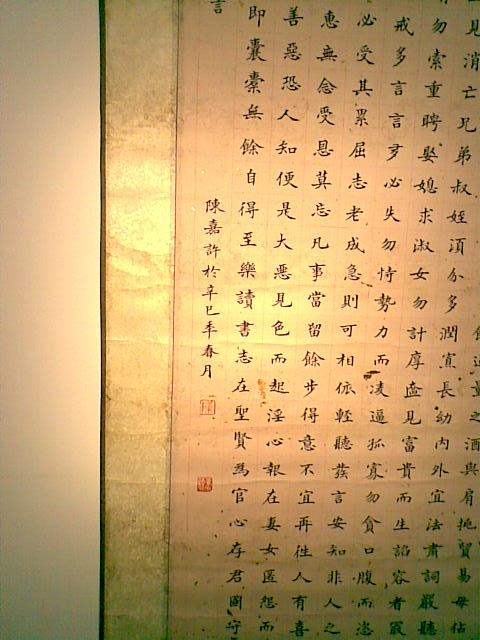 量之酒與肩挑貿易毋佔
見消亡兄弟叔姪須分多潤寡長幼內外宜法肅詞嚴聽
勿索重聘娶媳求淑女勿計厚奩見富貴而生諂容者最
戒多言言多必失勿恃勢力而凌逼孤寡勿貪口腹而恣
必受其累屈志老成急則可相依輕聽發言安知非人之
惠無念受恩莫忘凡事當留餘步得意不宜再往人有喜
善惡恐人知便是大惡見色而起淫心報在妻女匿怨而
即囊橐無餘自得至樂讀書志在聖賢為官心存君國守
言
陳嘉許於辛巳年春月